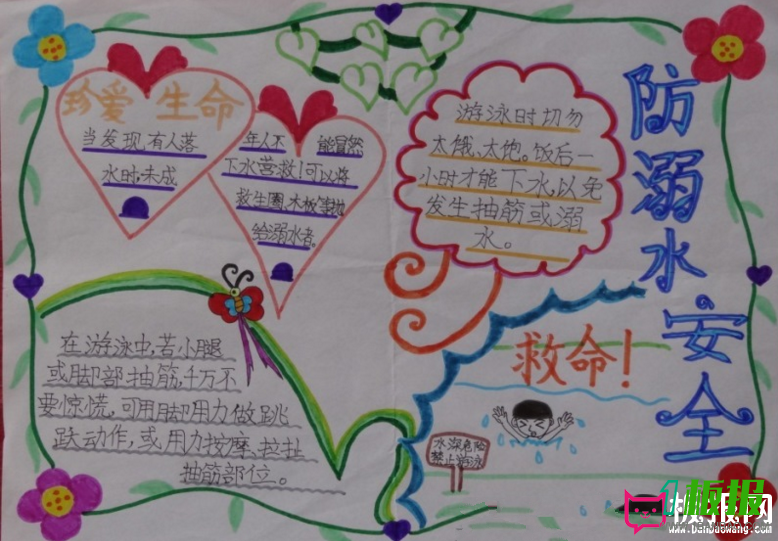 防溺水安全
珍爱 生命
当发现有人落
水时,未成
年人不 能冒然
下水营救!可以将
救生圈、木板等抛
给溺水者。
游泳时切勿
太饿、太饱。饭后一
小时才能下水,以免
发生抽筋或溺
水。
在游泳中,若小腿
或脚部抽筋,千万不
要惊慌,可用脚用力做跳
跃动作,或用力按摩、拉扯
抽筋部位。
救命!
水深危险
禁止游泳
板报
板报网
www.banbaowang.com